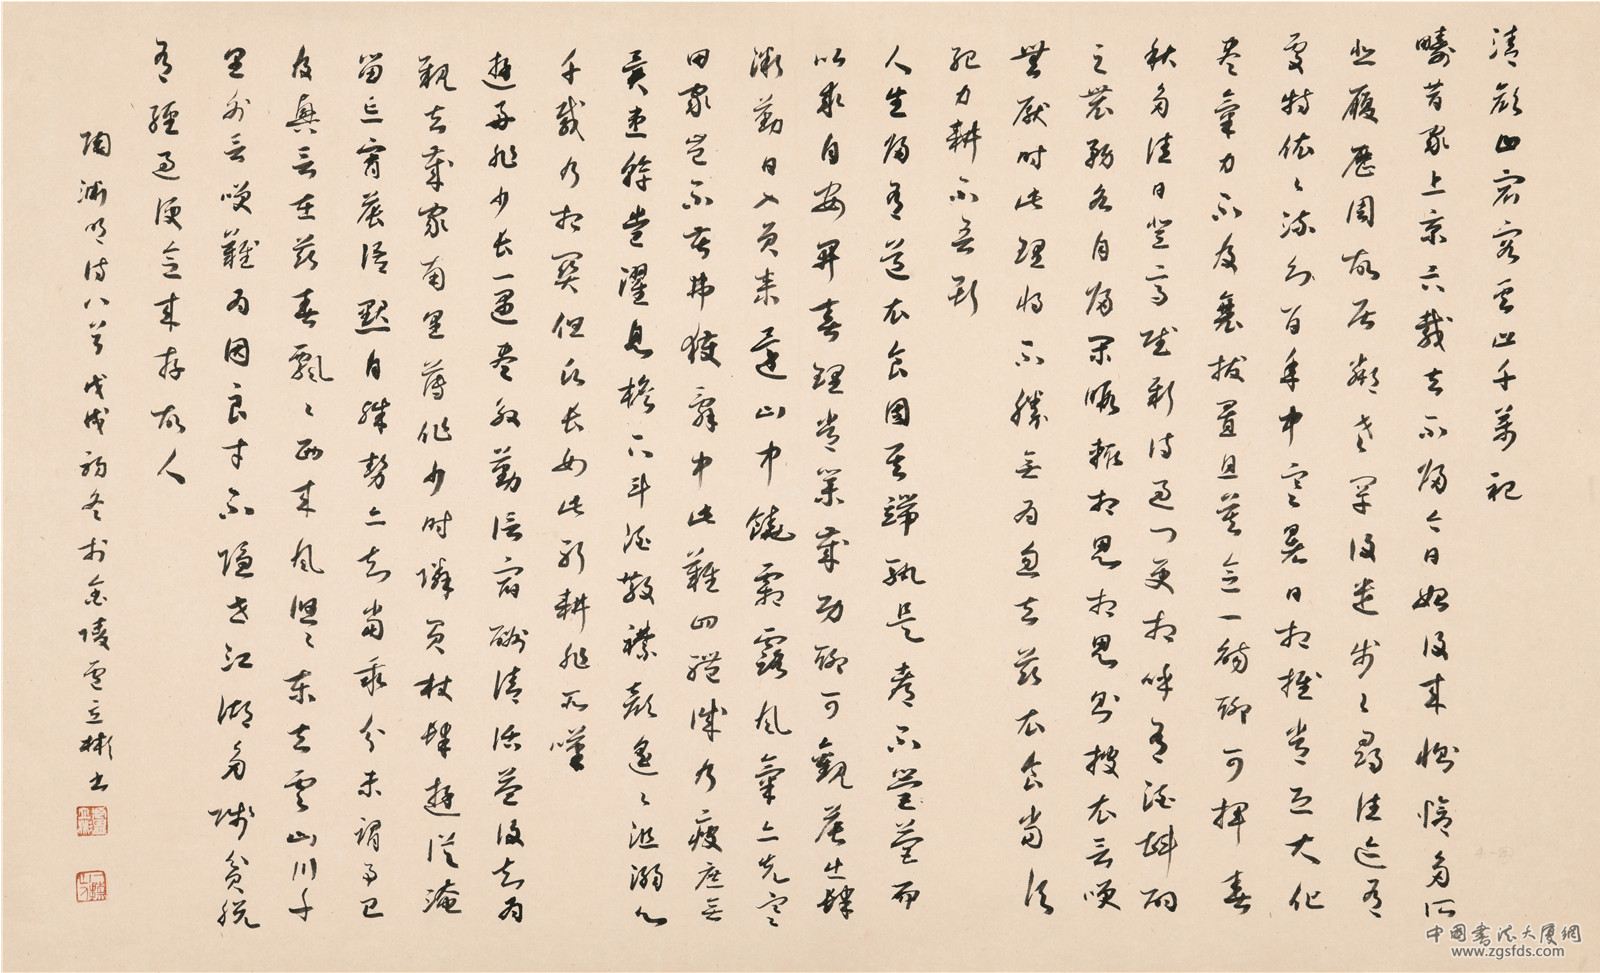 清顏止宿容奚止千萬祀
疇昔家上京六載去不歸今日始復來惻愴多所
悲履歷周故居鄰老罕復遺步々尋往迹有
處特依々流幻百年中寒暑日相推常恐大化
盡氣力不及衰撥置且莫念一觴聊可揮 春
秋多佳日登高賦新詩過門更相呼有酒斟酌
之農務各自歸閑暇輒相思相思則披衣言笑
無厭時此理將不勝無為忽去茲衣食當須
紀力耕不吾欺
人生歸有道衣食固其端孰是都不營而
以求自安開春理常業歲功聊可觀晨出肆
微勤日入負耒還山中饒霜露風氣亦先寒
田家豈不苦弗獲辭中此難四體誠乃疲庶無
異患幹盥濯息檐下斗酒散襟顏遙々沮溺心
千載乃相關但願長如此躬耕非所嘆
遊好非少長一遇盡殷勤信宿酬清話益復知為
親去歲家南里薄作少時隣負杖肆遊從淹
留忘宵晨語默自殊勢亦知當乖分未謂事已
及興言在茲春飄々西來風悠々東去雲山川千
里外言笑難為因良才不隱世江湖多賤貧脫
有經過便念來存故人
陶淵明詩八首 戊戌初冬於金陵盧立彬書
中國書法大廈網
www.zgsfds.com